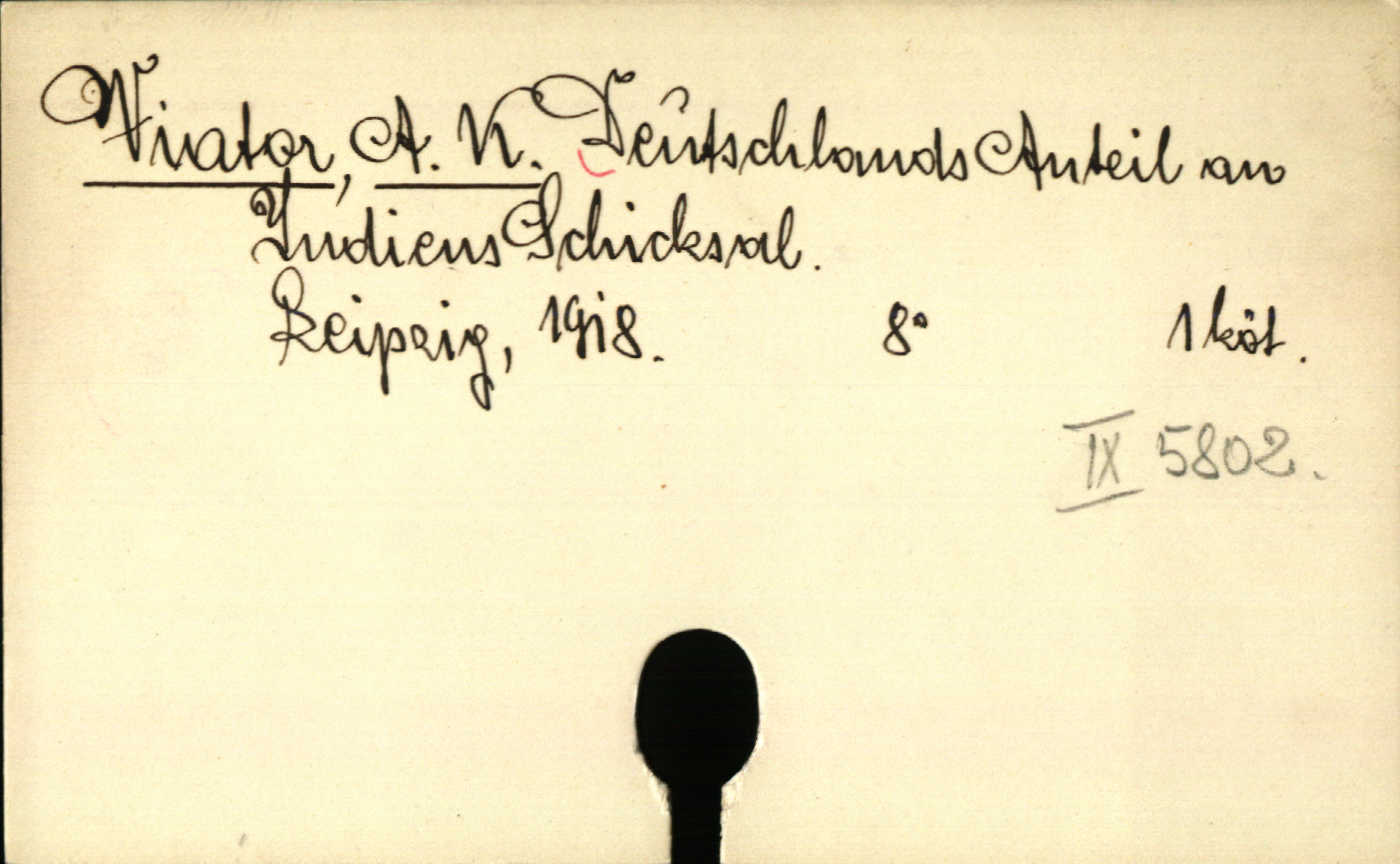 Viator, A. K. Deutschlands Anteil an
Indiens Schicksal.
Leipzig, 1918. 8° 1 köt.
IX 5802.